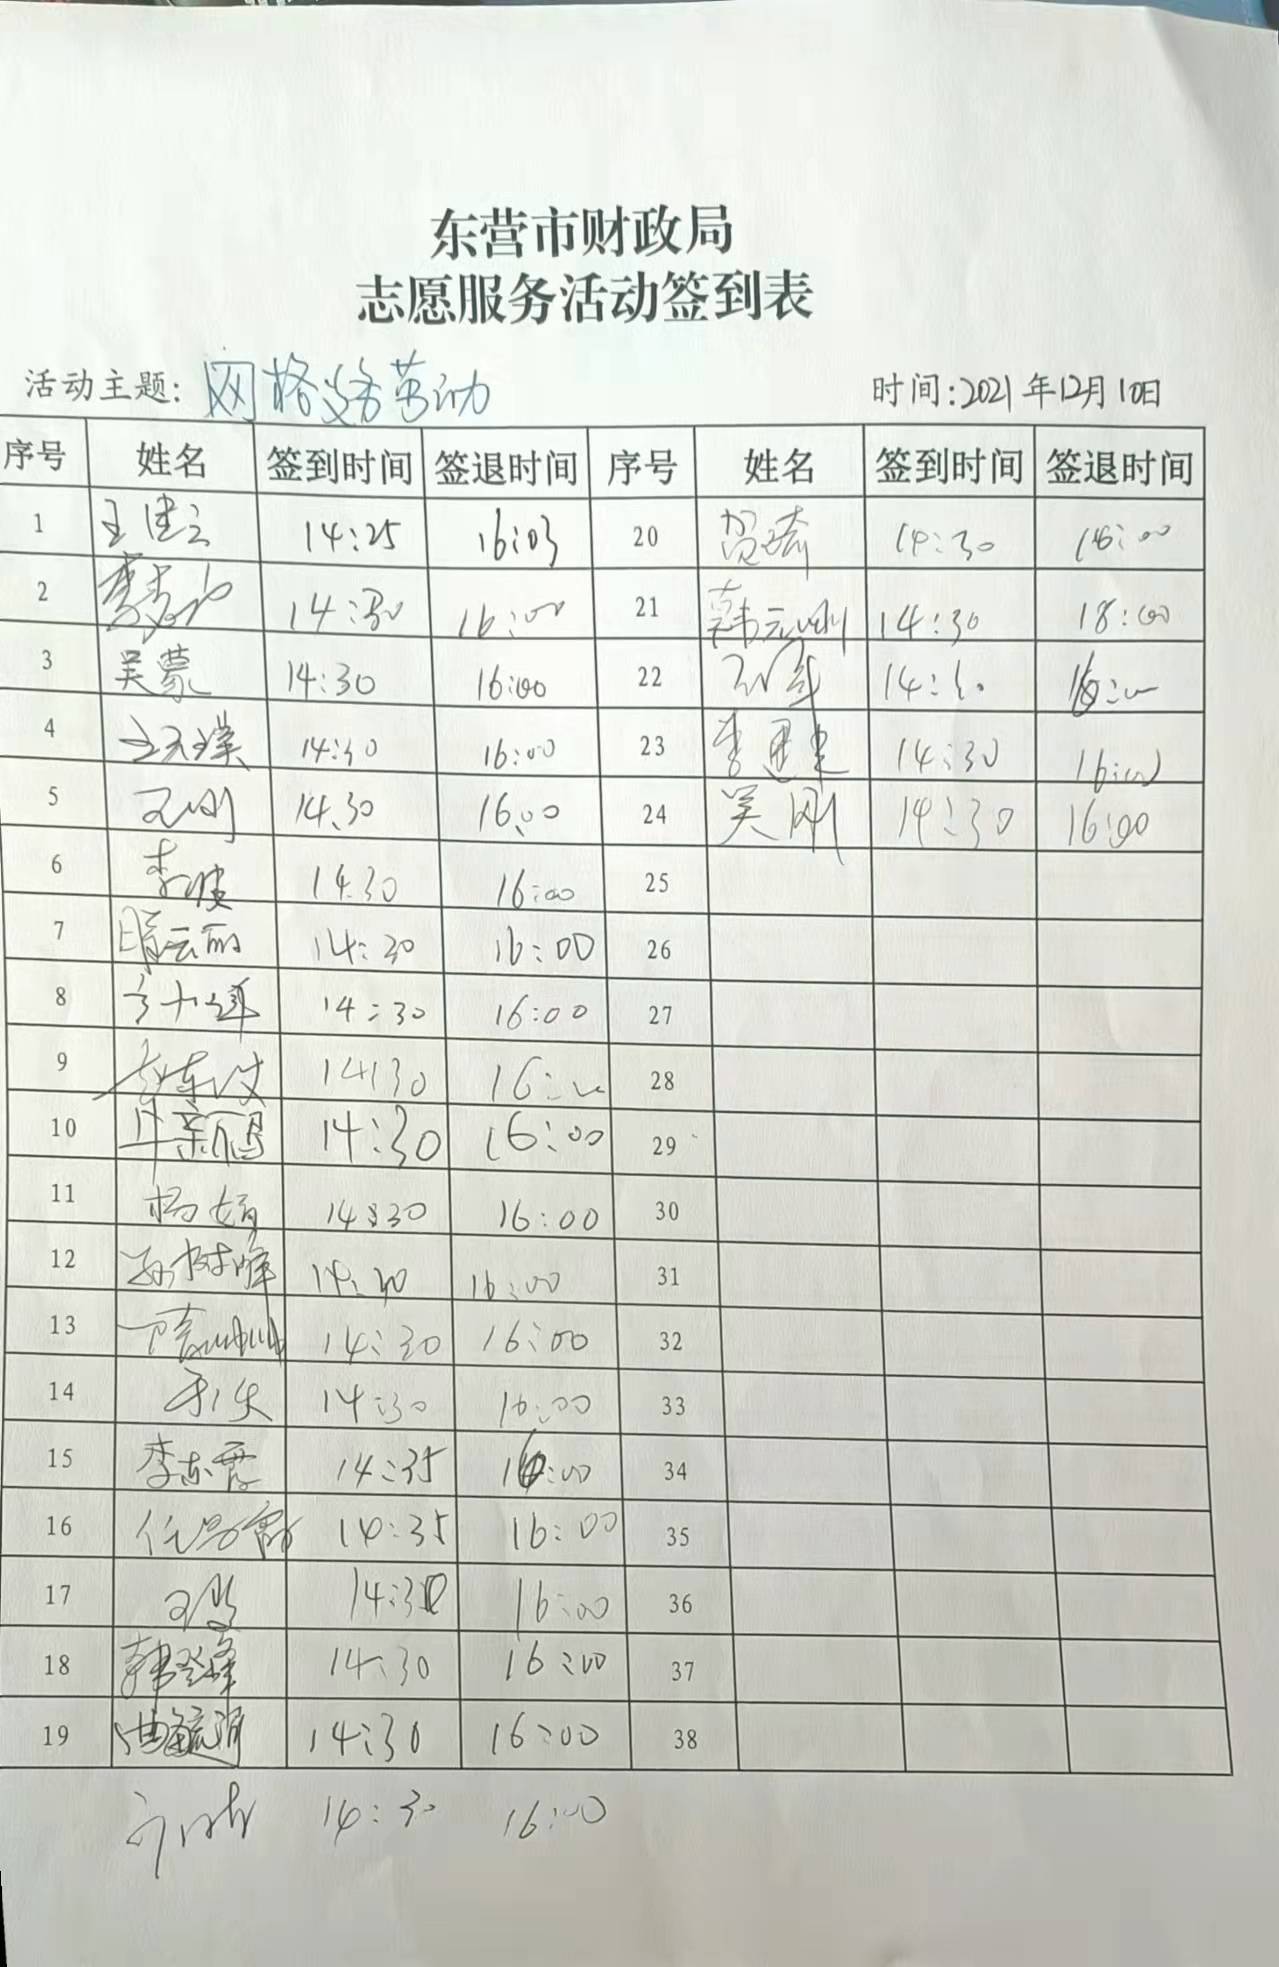 东营市财政局
志愿服务活动签到表
活动主题: 网格义务劳动 时间:2021年12月10日
序号 姓名 签到时间 签退时间 序号 姓名 签到时间 签退时间
1 14:25 16:03 20 贺琦 14:30 16:00
2 14:30 16:00 21 14:30 18:00
3 吴蒙 14:30 16:00 22 14:30
4 14:30 16:00 23 李建 14:30 16:00
5 王刚 14:30 16:00 24 吴刚 14:30 16:00
6 李波 14:30 16:00 25
7 云丽 14:30 16:00 26
8 14:30 16:00 27
9 14:30 16: 28
10 14:30 16:00 29
11 杨娟 14:30 16:00 30
12 孙树峰 14:30 16:00 31
13 14:30 16:00 32
14 14:30 16:00 33
15 李志霞 14:35 16:00 34
16 任 14:35 16:00 35
17 14:30 16:00 36
18 韩登峰 14:30 16:00 37
19 14:30 16:00 38
14:30 16:00